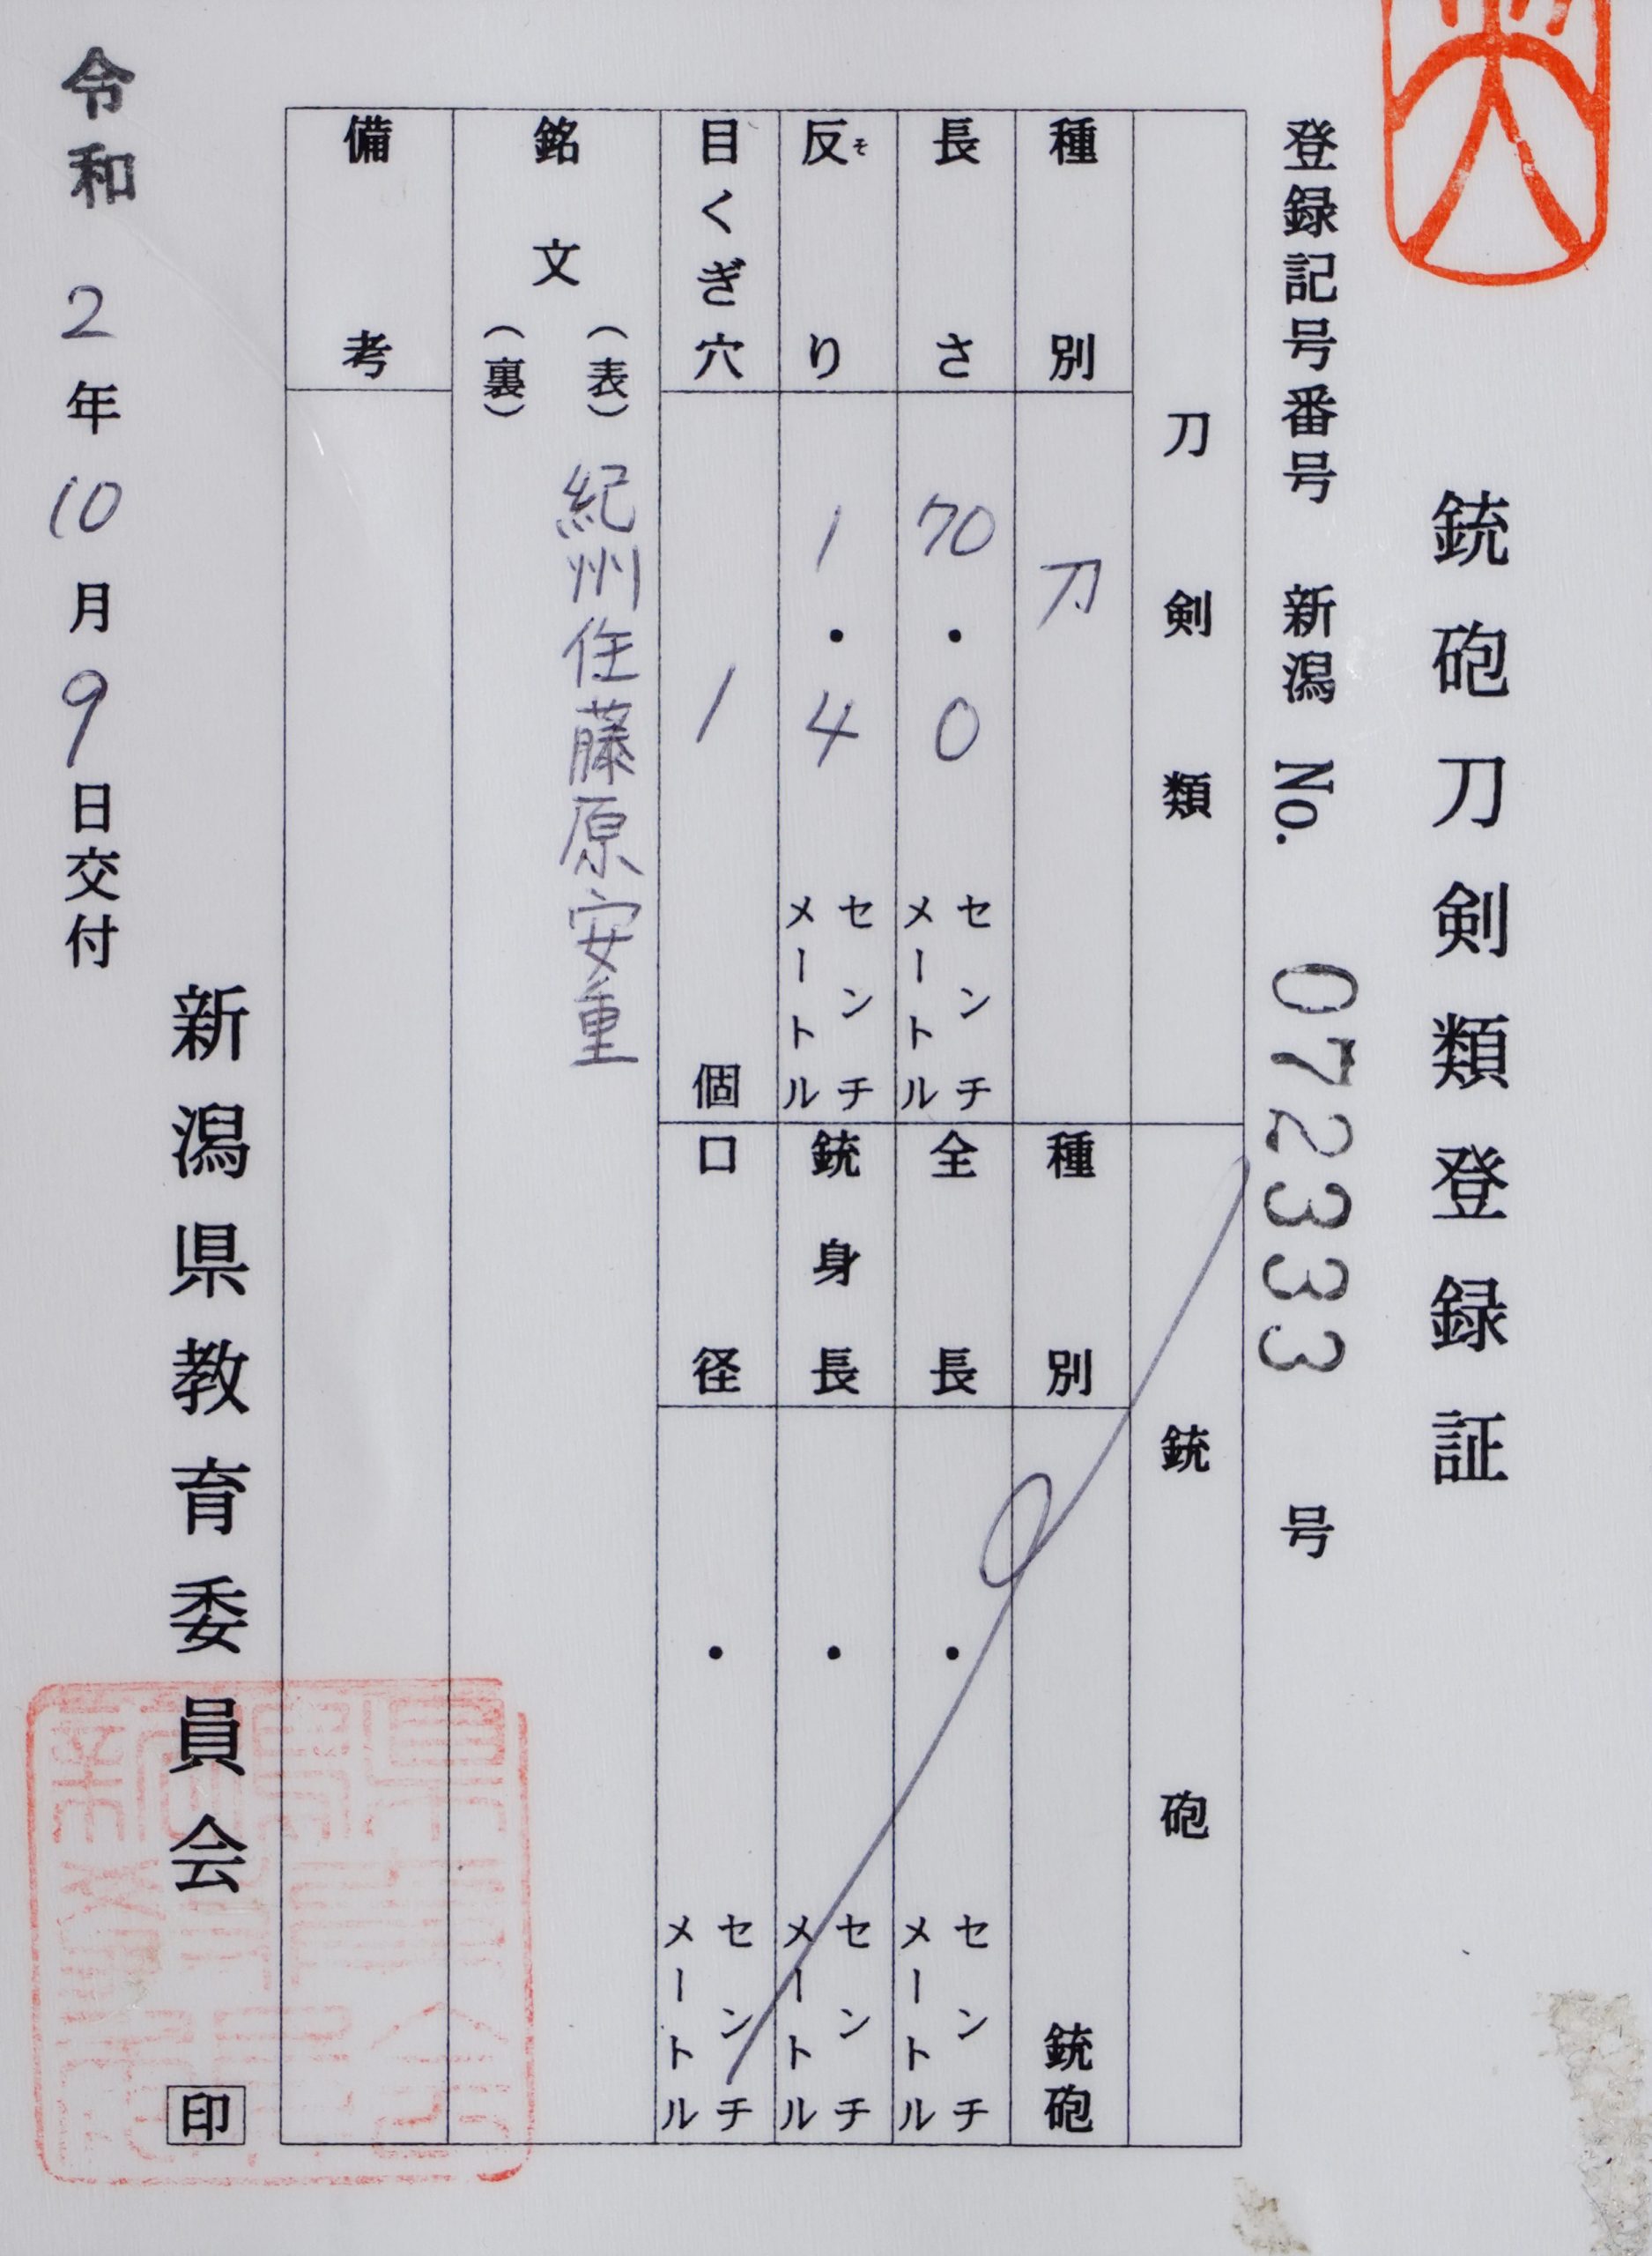 銃砲刀剣類登録証
登録記号番号 新潟 No. 072333 号
刀剣類
種別 刀
長さ 70・0 センチメートル
反り 1・4 センチメートル
そ
目くぎ穴 1 個
銃砲
種別 銃砲
全長 ・ センチメートル
銃身長 ・ センチメートル
口径 ・ センチメートル
銘文
(表) 紀州住藤原安重
(裏)
備考
新潟県教育委員会 印
令和2年10月9日交付